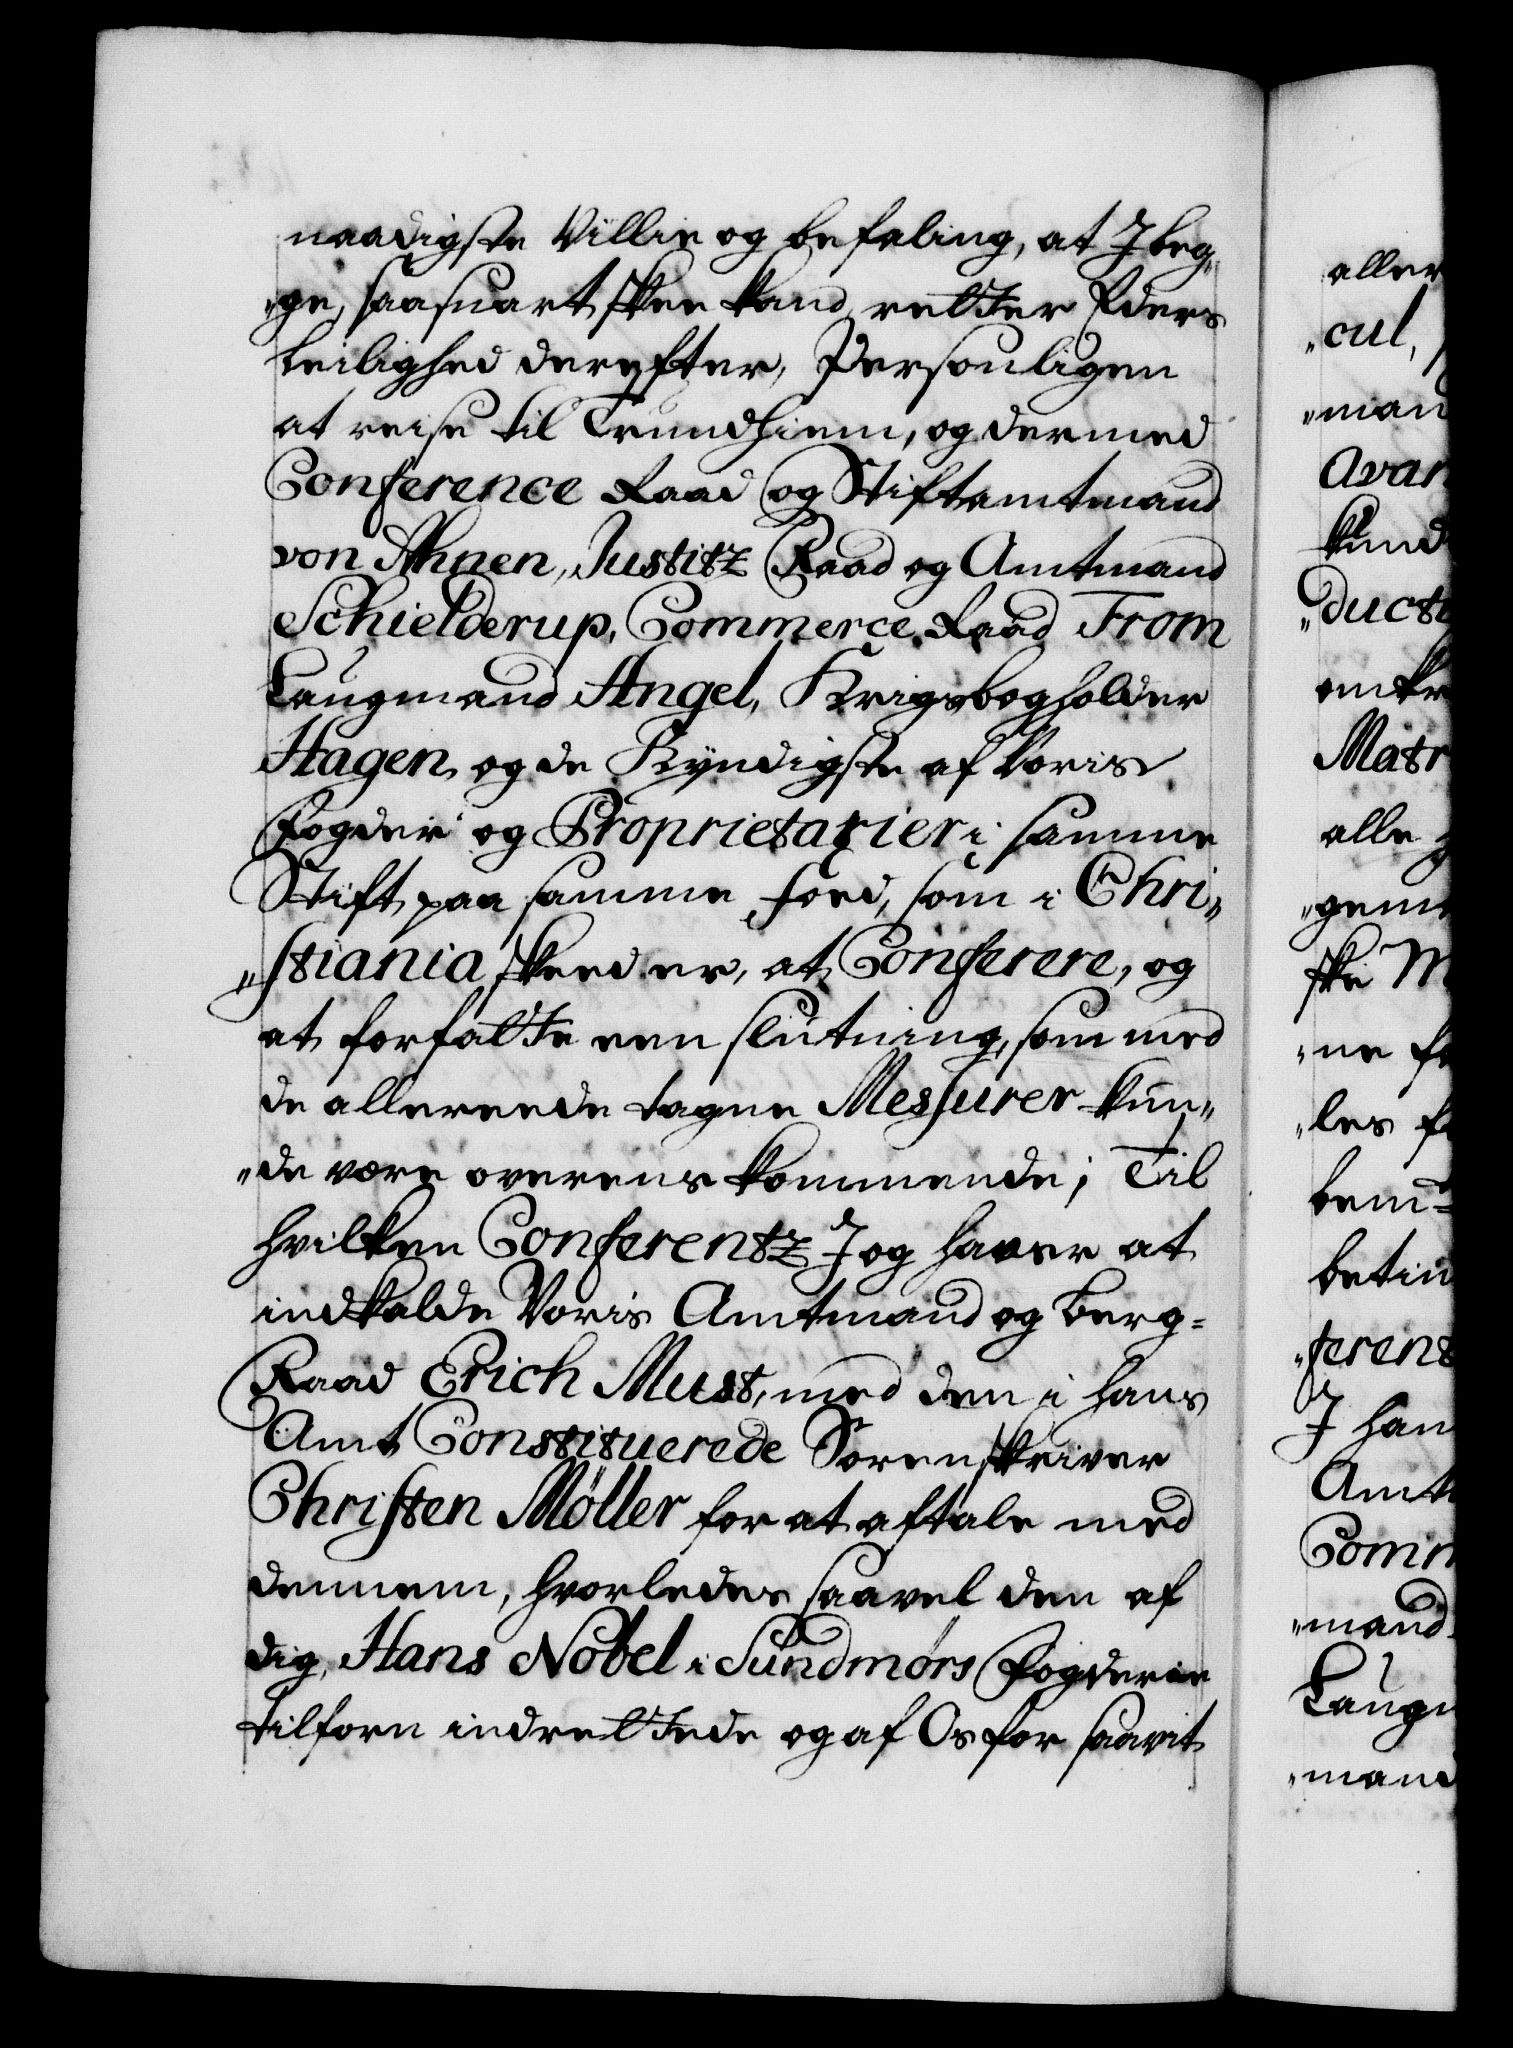 naadigste Villie og befaling, at I beg„
„ge, saasnart skee kand, retter Eders
Leilighed derefter, Personligen
at reise til Trundhiem, og dermed
Conference Raad og Stiftamtmand
von Ahnen, Justitz Raad og Amtmand
Schielderup, Commerce Raad From
Laugmand Angel, Krigsbogholder
Hagen, og de Kyndigste af Voris
Fogder og Proprietarier i samme
Stift paa samme foed, som i Chri„
„stiania skeed er, at Conferere, og
at forfatte een slutning, som med
de allereede tagne Messurer kun„
„de være overenskommende; Til
hvilken Conferentz I og haver at
indkalde Voris Amtmand og Berg=
Raad Erich Must, med den i hans
Amt Constituerede Sorenskriver
Christen Möller for at aftale med
dennem, hvorledes saavel den af
dig, Hans Nobel i Sundmørs Fogderie
tilforn indrettede og af Os for saavit
aller
„cul,
„man
Avan
kund
„duct
omkr
Matr
alle
„geme
ske M
„ne
„les
bem
betin
„ferent
I han
Amt
Comm
„mand
Laugm
„mand